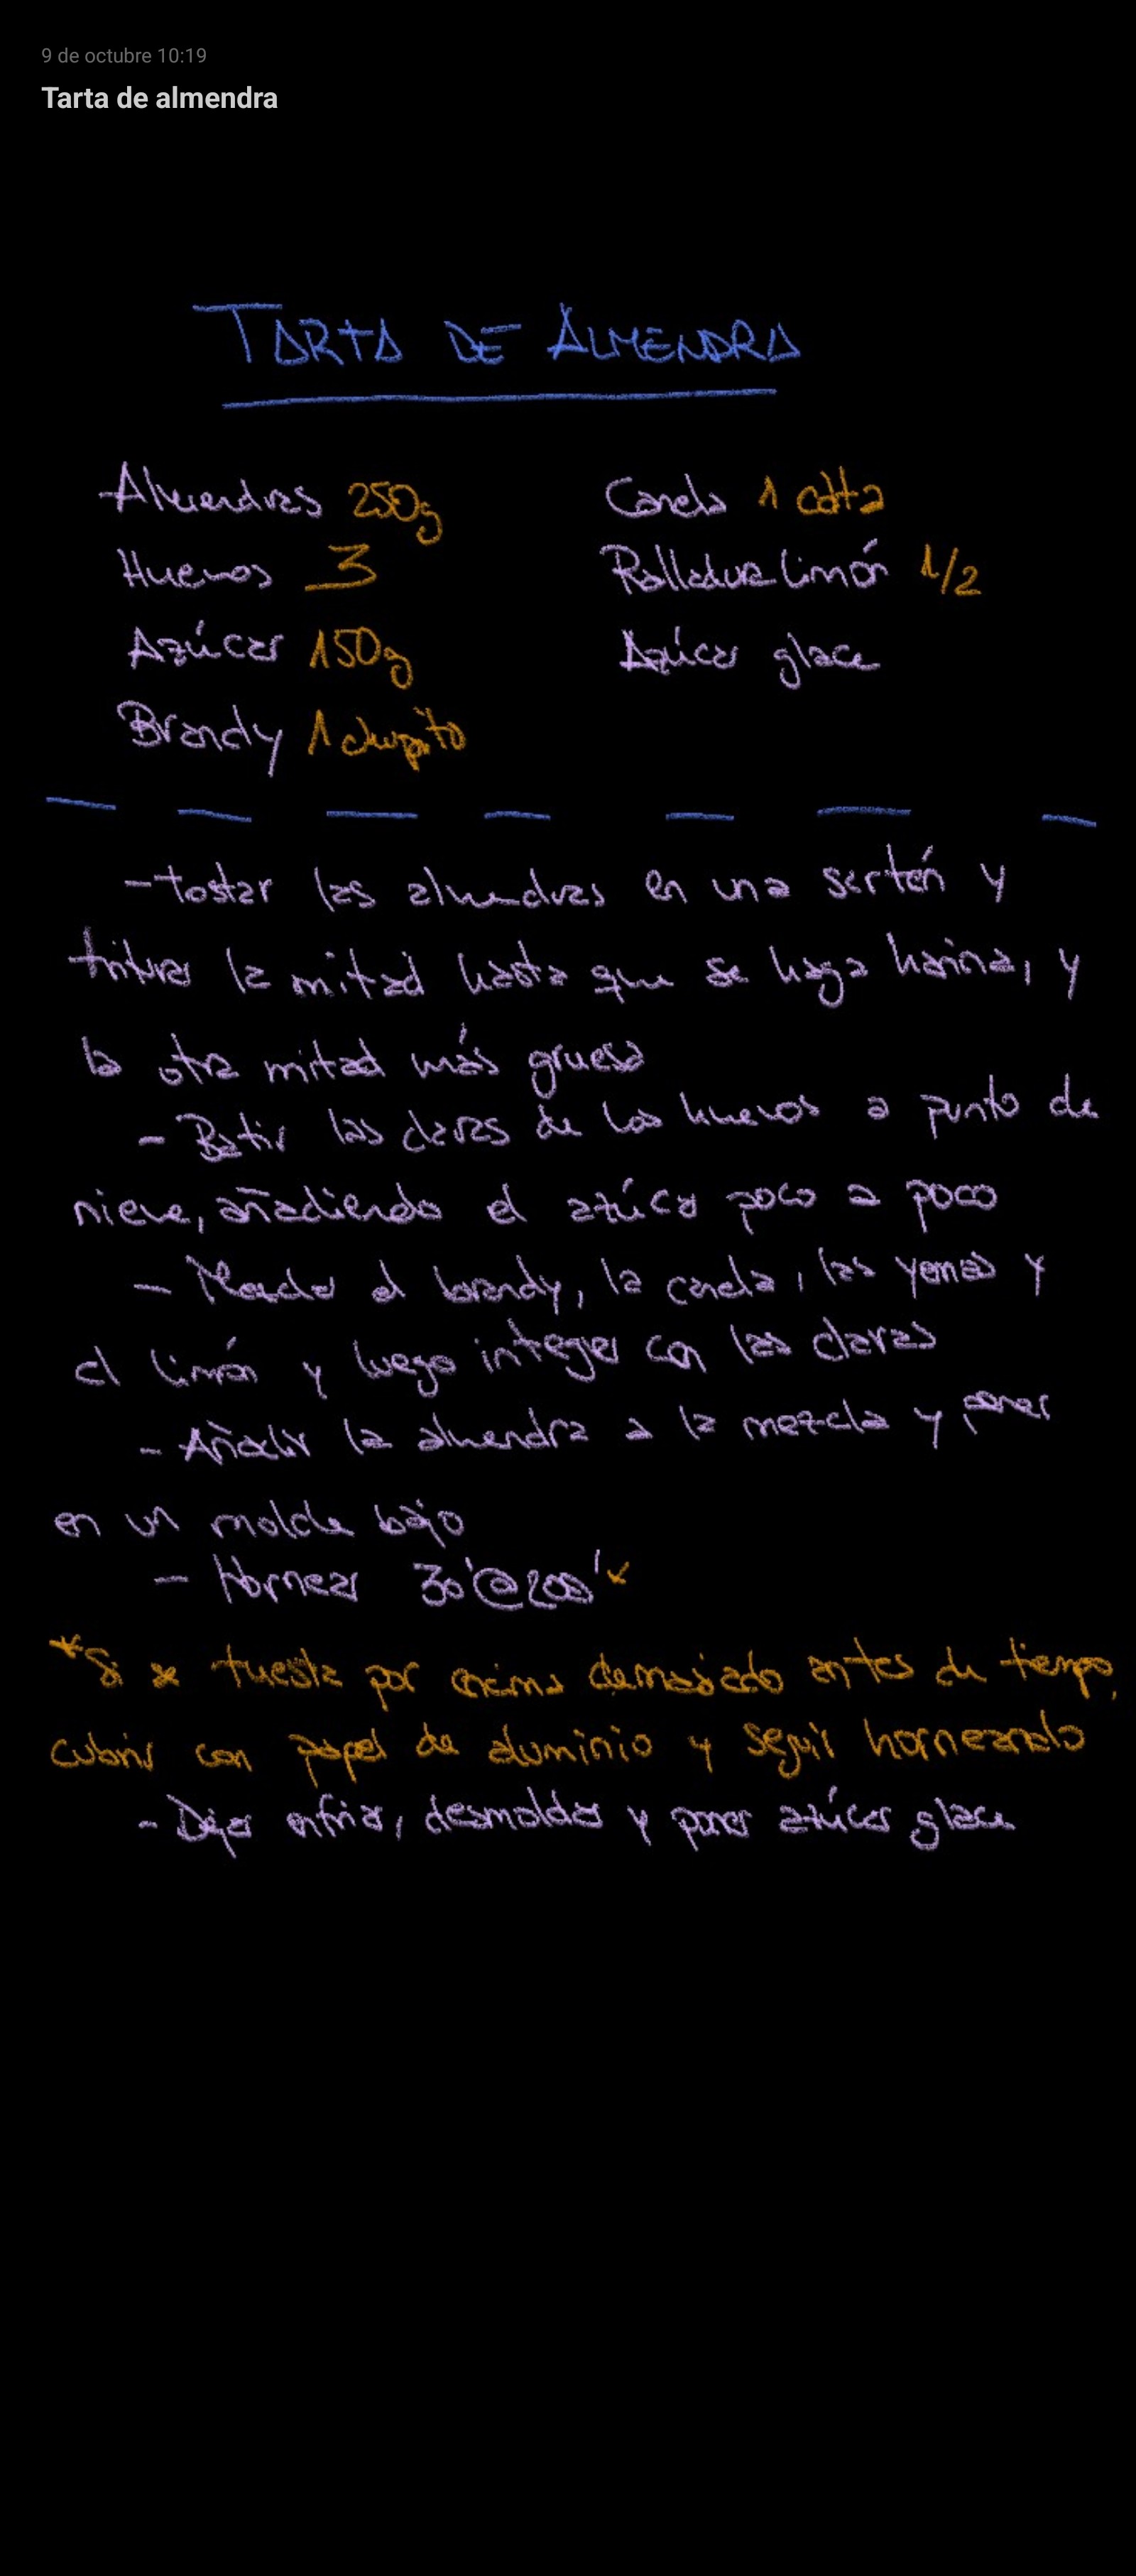 9 de octubre 10:19
Tarta de almendra
TARTA DE ALMENDRA
Almendras 250g
Huevos 3
Azúcar 150g
Brandy 1 chupito
Canela 1 cdta
Ralladura limón 1/2
Azúcar glace
- tostar las almendras en una sartén y
triturar la mitad hasta que se haga harina, y
la otra mitad más gruesa
- Batir las claras de los huevos a punto de
nieve, añadiendo el azúcar poco a poco
- Mezclar el brandy, la canela, las yemas y
el limón y luego integrar con las claras
- Añadir la almendra a la mezcla y poner
en un molde bajo
- Hornear 30'@200'*
*Si se tuesta por encima demasiado antes de tiempo,
cubrir con papel de aluminio y seguir horneando
- Dejar enfriar, desmoldar y poner azúcar glace